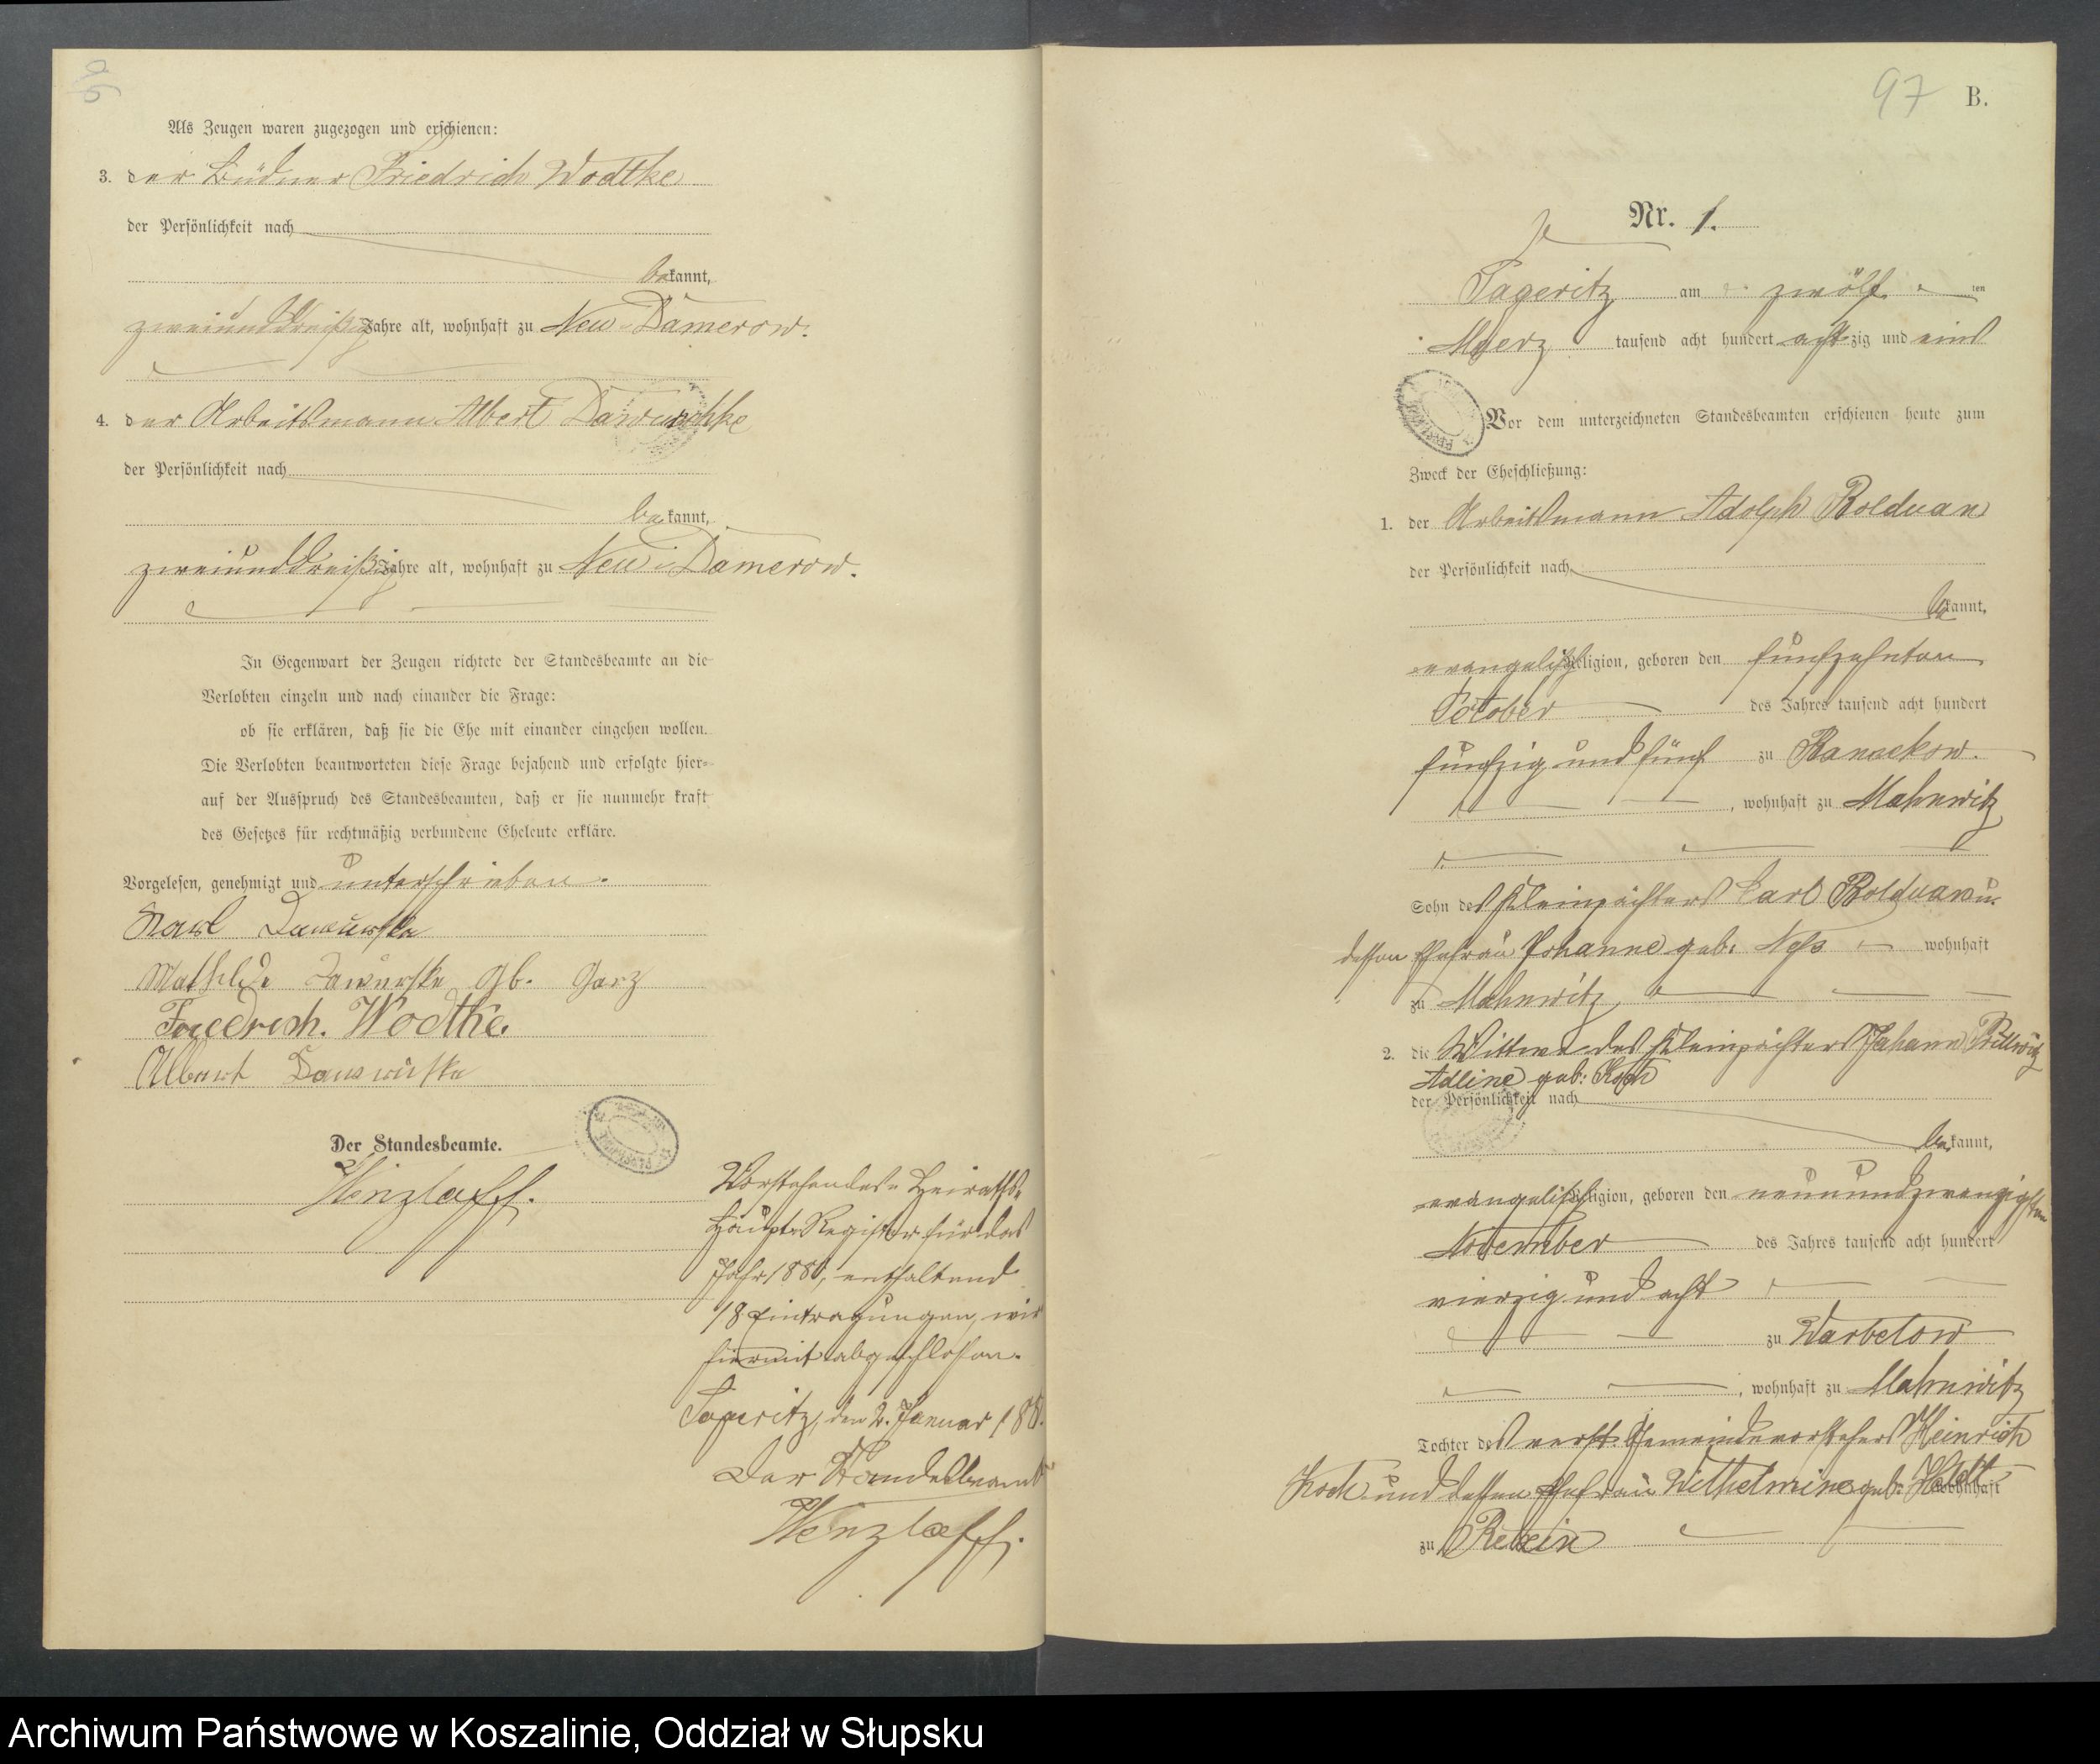 Als Zeugen waren zugezogen und erschienen:
3. der Büdner Friedrich Wodtke
der Persönlichkeit nach
bekannt,
zweiunddreißig Jahre alt, wohnhaft zu Neu-Damerow.
4. der Arbeitsmann Albert
der Persönlichkeit nach
bekannt,
zweiunddreißig Jahre alt, wohnhaft zu Neu-Damerow.
In Gegenwart der Zeugen richtete der Standesbeamte an die
Verlobten einzeln und nach einander die Frage:
ob sie erklären, daß sie die Ehe mit einander eingehen wollen.
Die Verlobten beantworteten diese Frage bejahend und erfolgte hier-
auf der Ausspruch des Standesbeamten, daß er sie nunmehr kraft
des Gesetzes für rechtmäßig verbundene Eheleute erkläre.
Vorgelesen, genehmigt und unterschrieben.
Karl
Mathilde gb. Garz
Friedrich. Wodtke.
Albert
Der Standesbeamte.
Wenzlaff.
Vorstehendes Heiraths-
Haupt-Register für das
Jahr 1880, enthaltend
18 Eintragungen, wird
hiermit abgeschlossen.
den 2. Januar
Der Standesbeamte
Wenzlaff.
97 B.
Nr. 1.
am zwölf ten
Maerz tausend acht hundert achtzig und eins
Vor dem unterzeichneten Standesbeamten erschienen heute zum
Zweck der Eheschließung:
1. der Arbeitsmann Adolph Bolduan
der Persönlichkeit nach
bekannt,
evangelischer Religion, geboren den fünfzehnten
October des Jahres tausend acht hundert
fünfzig und fünf zu
, wohnhaft zu Mahnwitz
Sohn des Kleinpächters Carl Bolduan u.
dessen Ehefrau Johanne geb. wohnhaft
zu Mahnwitz
2. die Wittwe des Kleinpächters Johann
Adline geb: Koch
der Persönlichkeit nach
bekannt,
evangelischer Religion, geboren den neunundzwanzigsten
November des Jahres tausend acht hundert
vierzig und acht
zu Warbelow
, wohnhaft zu Mahnwitz
Tochter des verst. Gemeindevorstehers Heinrich
Koch und dessen Ehefrau Wilhelmine geb: wohnhaft
zu
Archiwum Państwowe w Koszalinie, Oddział w Słupsku